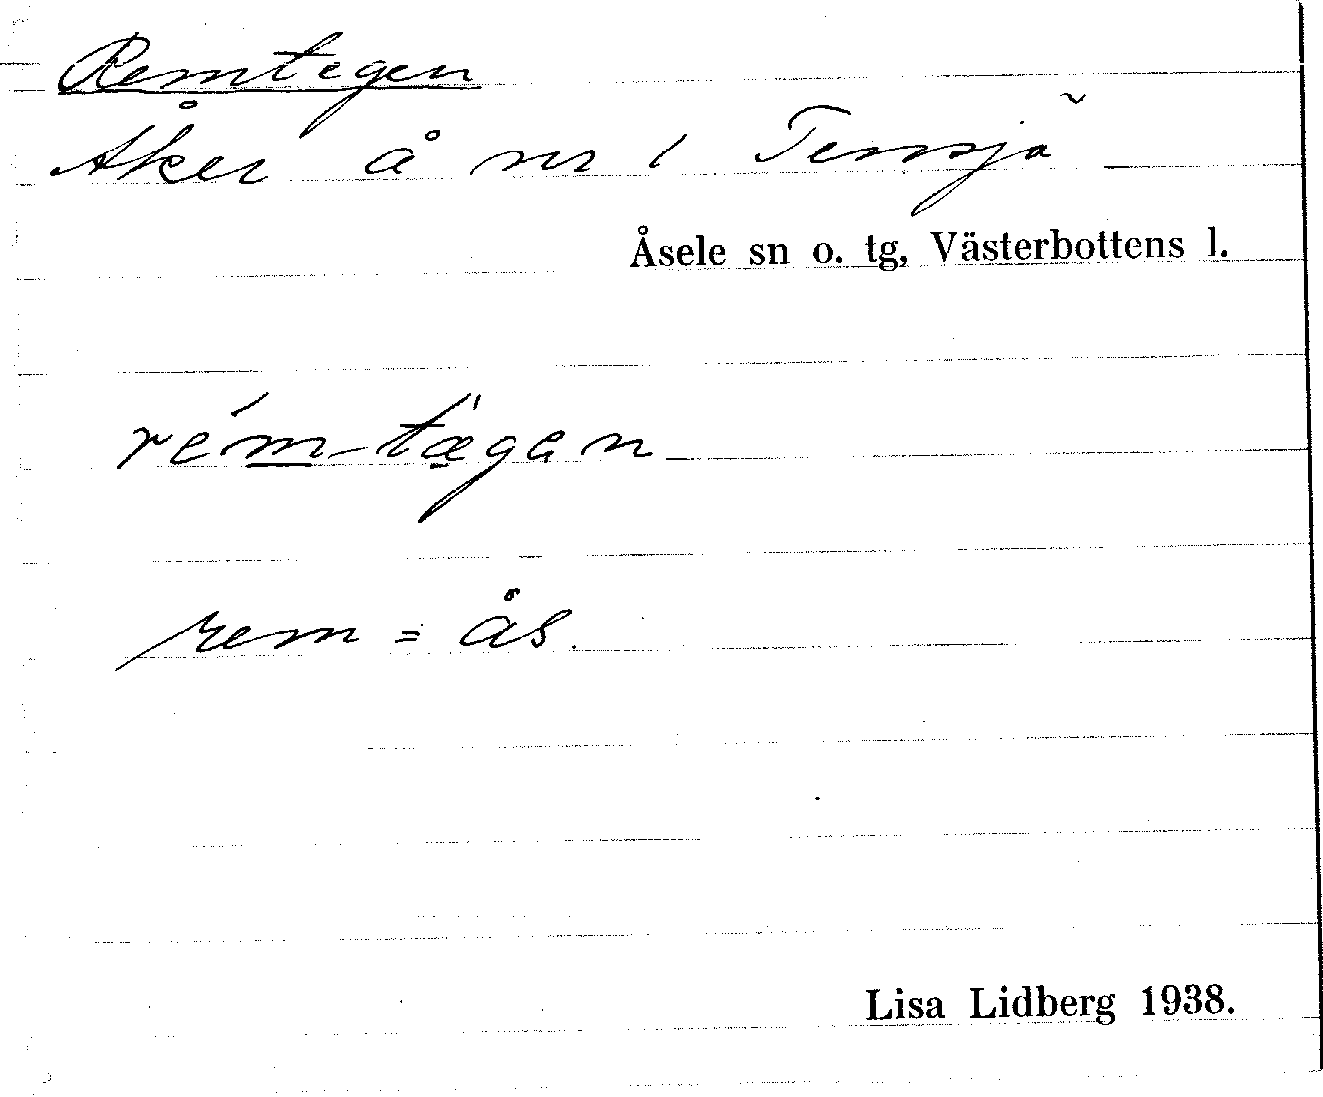 Remtegen
Åker å nr 1 Tensjö
Åsele sn o. tg, Västerbottens l.
rém-tægen
rem = ås.
Lisa Lidberg 1938.